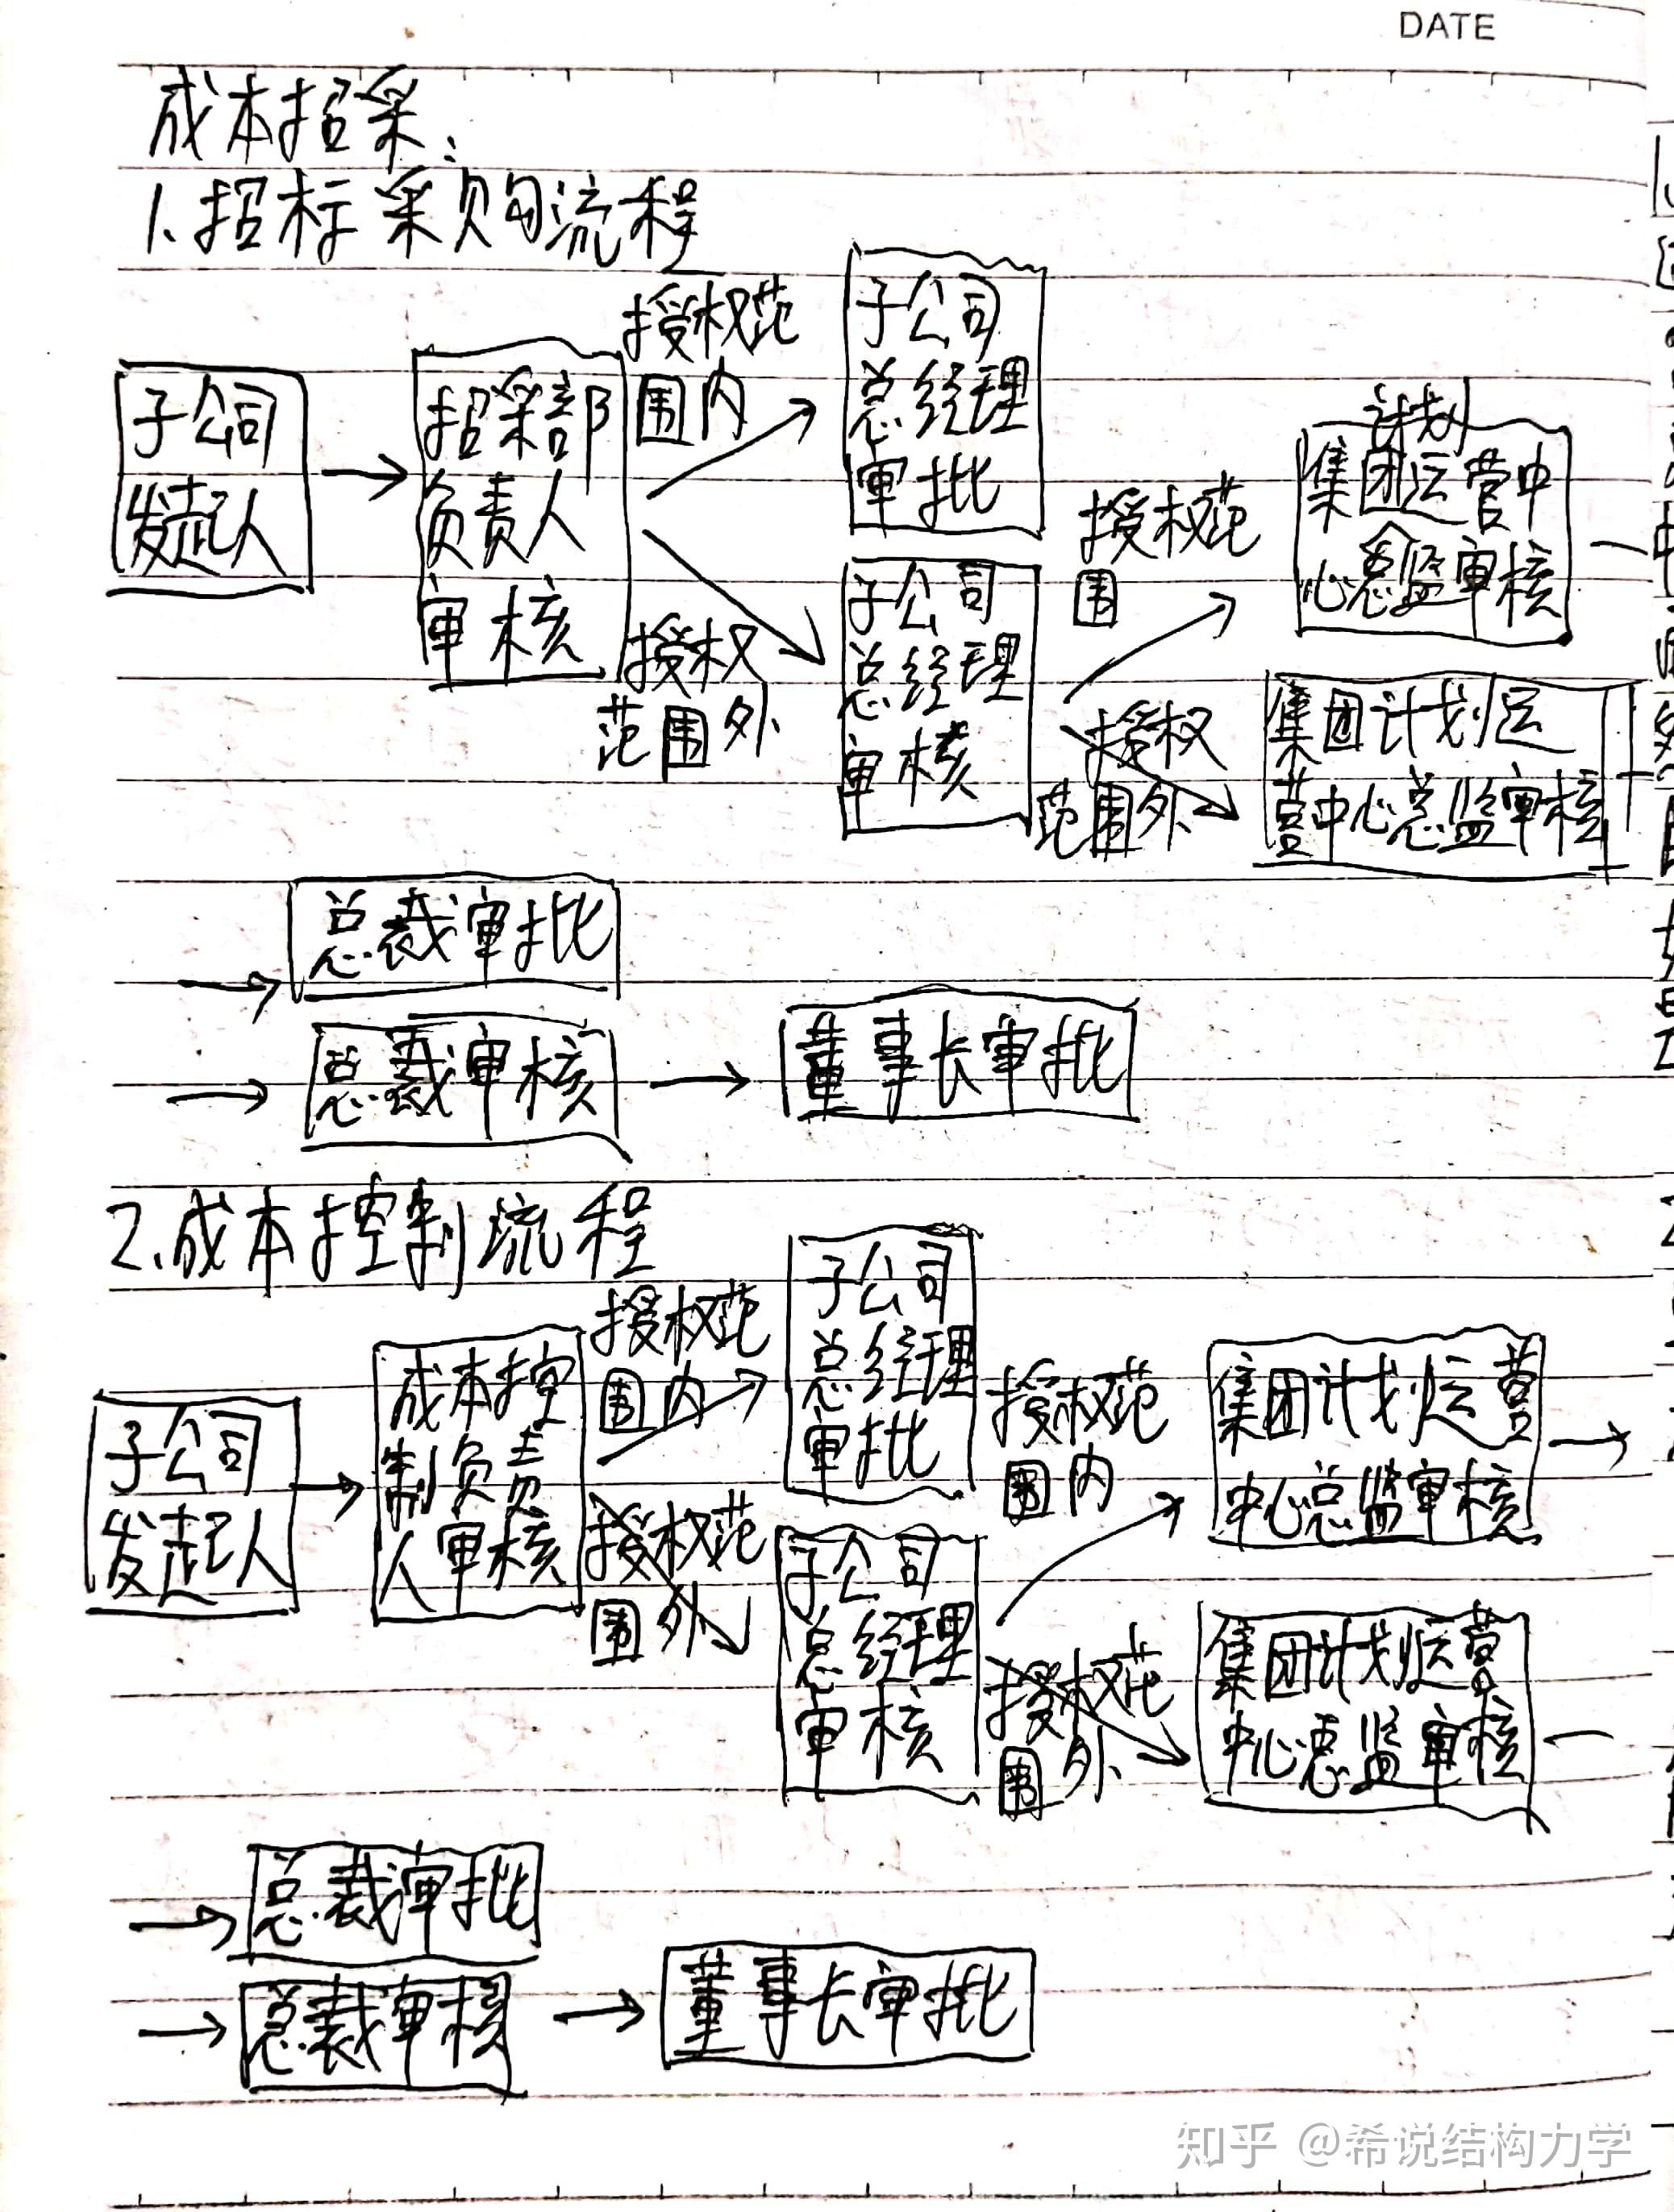 DATE
成本招采:
1.招标采购流程
子公司
发起人
招采部
负责人
审核
授权范
围内
授权
范围外
子公司
总经理
审批
子公司
总经理
审核
授权范
围
授权
范围外
计划
集团运营中
心总监审核
集团计划运
营中心总监审核
总裁审批
总裁审核
董事长审批
2.成本控制流程
子公司
发起人
成本控
制负责
人审核
授权范
围内
授权范
围外
子公司
总经理
审批
子公司
总经理
审核
授权范
围内
授权范
围外
集团计划运营
中心总监审核
集团计划运营
中心总监审核
总裁审批
总裁审核
董事长审批
知乎 @希说结构力学